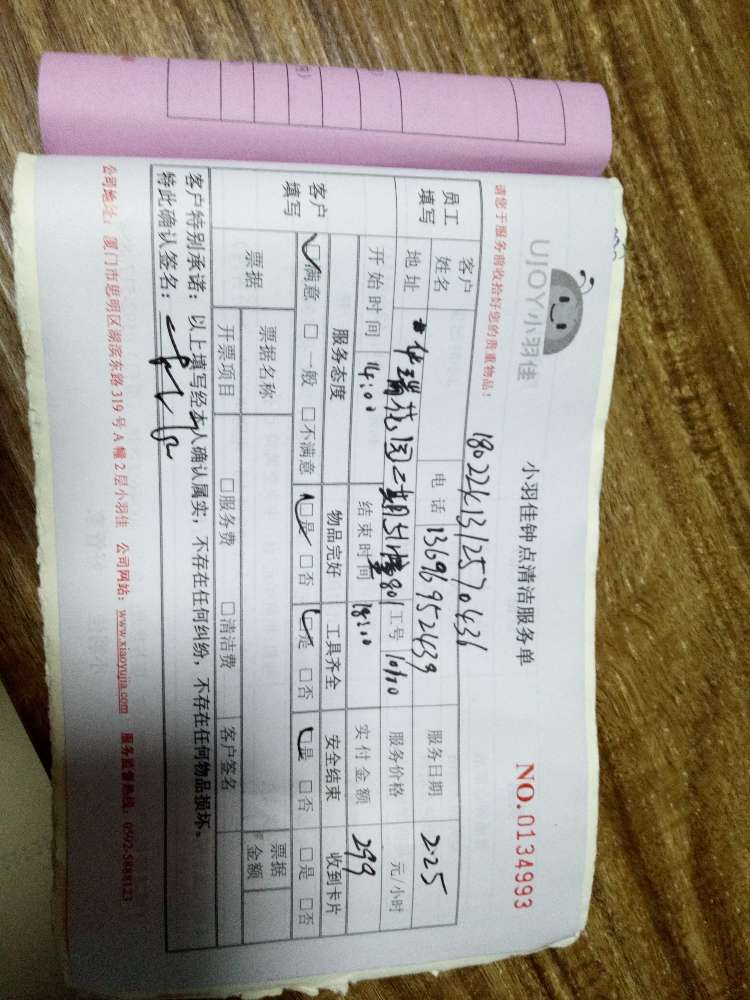 UJOY小羽佳
小羽佳钟点清洁服务单
NO.0134993
请您于服务前收拾好您的贵重物品！
18022121312570431
员工填写
客户姓名
电话 13696952439
服务日期 2.25
地址 中华瑞花园二期51幢801
工号 10110
服务价格 元/小时
开始时间 14:00
结束时间 18:00
实付金额 299
客户填写
服务态度 物品完好 工具齐全 安全结束 收到卡片
☑满意 □一般 □不满意 ☑是 □否 ☑是 □否 ☑是 □否 □是 □否
票据 票据名称 票据金额
开票项目 □服务费 □清洁费 客户签名
客户特别承诺：以上填写经本人确认属实，不存在任何纠纷，不存在任何物品损坏。
特此确认签名：
公司地址：厦门市思明区湖滨东路319号A幢2层小羽佳 公司网站：www.xiaoyujia.com 服务监督热线：0592-5888123